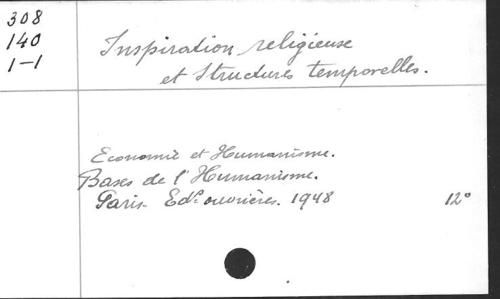 308
140
1-1
Inspiration religieuse
et structures temporelles.
Economie et Humanisme.
Bases de l'Humanisme.
Paris. Edns ouvrières. 1948 12°